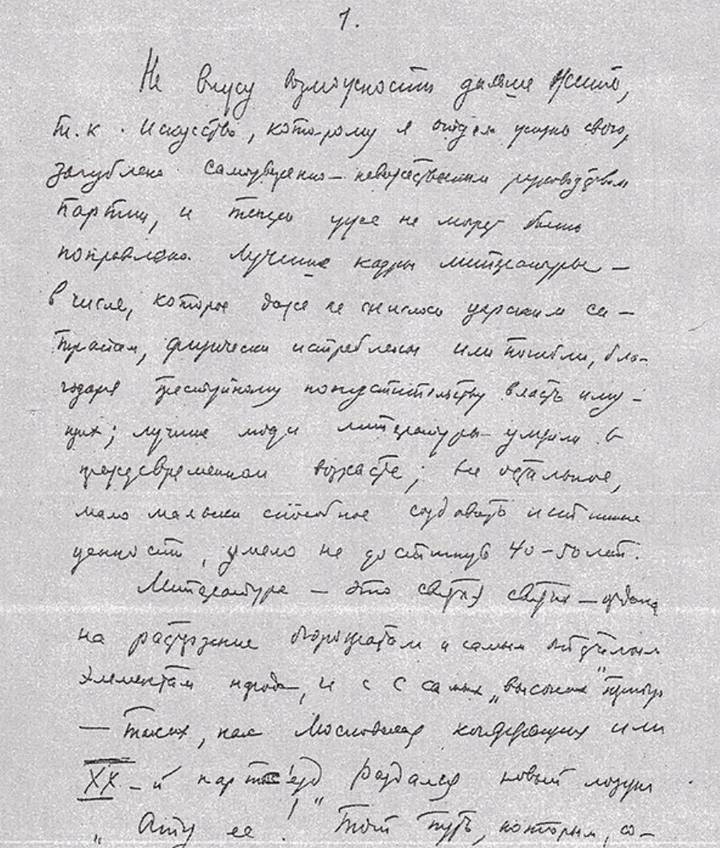 1.
Не вижу возможности дальше жить,
т.к. искусство, которому я отдал жизнь свою,
загублено самоуверенно-невежественным руководством
партии, и теперь уже не может быть
поправлено. Лучшие кадры литературы —
в числе, которое даже не снилось царским са-
трапам, физически истреблены или погибли, бла-
годаря преступному попустительству власть иму-
щих; лучшие люди литературы умерли в
преждевременном возрасте; все остальное,
мало мальски способное создавать истинные
ценности, умерло не достигнув 40-50 лет.
Литература — это святая святых — отдана
на растерзание бюрократам и самым отсталым
элементам народа, и с с самых "высоких" трибун
— таких, как Московская конференция или
XX-й партсъезд раздался новый лозунг
"Ату ее!" Тот путь, которым, со-